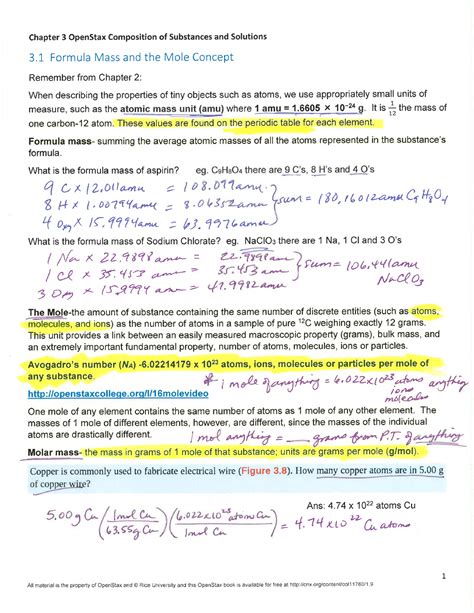 Chapter 3 OpenStax Composition of Substances and Solutions
3.1 Formula Mass and the Mole Concept
Remember from Chapter 2:
When describing the properties of tiny objects such as atoms, we use appropriately small units of
measure, such as the atomic mass unit (amu) where 1 amu = 1.6605 × 10⁻²⁴ g. It is 1/12 the mass of
one carbon-12 atom. These values are found on the periodic table for each element.
Formula mass- summing the average atomic masses of all the atoms represented in the substance's
formula.
What is the formula mass of aspirin? eg. C₉H₈O₄ there are 9 C's, 8 H's and 4 O's
9 C x 12.011amu = 108.099amu
8 H x 1.00794amu = 8.06352amu } sum = 180.16012amu C₉H₈O₄
4 Oxy x 15.9994amu = 63.9976amu
What is the formula mass of Sodium Chlorate? eg. NaClO₃ there are 1 Na, 1 Cl and 3 O's
1 Na x 22.9898amu = 22.9898amu
1 Cl x 35.453 amu = 35.453amu } sum = 106.441amu
3 Oxy x 15.9994 amu = 47.9982amu NaClO₃
The Mole-the amount of substance containing the same number of discrete entities (such as atoms,
molecules, and ions) as the number of atoms in a sample of pure ¹²C weighing exactly 12 grams.
This unit provides a link between an easily measured macroscopic property (grams), bulk mass, and
an extremely important fundamental property, number of atoms, molecules, ions or particles.
Avogadro's number (Nᴀ) -6.02214179 x 10²³ atoms, ions, molecules or particles per mole of
any substance.
* 1 mole of anything = 6.022x10²³ atoms anything
ions
molecules
http://openstaxcollege.org/l/16molevideo
One mole of any element contains the same number of atoms as 1 mole of any other element. The
masses of 1 mole of different elements, however, are different, since the masses of the individual
atoms are drastically different.
1 mol anything = __ grams from P.T. of anything
Molar mass- the mass in grams of 1 mole of that substance; units are grams per mole (g/mol).
Copper is commonly used to fabricate electrical wire (Figure 3.8). How many copper atoms are in 5.00 g
of copper wire?
Ans: 4.74 x 10²² atoms Cu
5.00g Cu / 1mol Cu / 6.022x10²³ atoms Cu = 4.74 x10²² Cu atoms
63.55g Cu / 1mol Cu
1
All material is the property of OpenStax and © Rice University and this OpenStax book is available for free at http://cnx.org/content/col11760/1.9